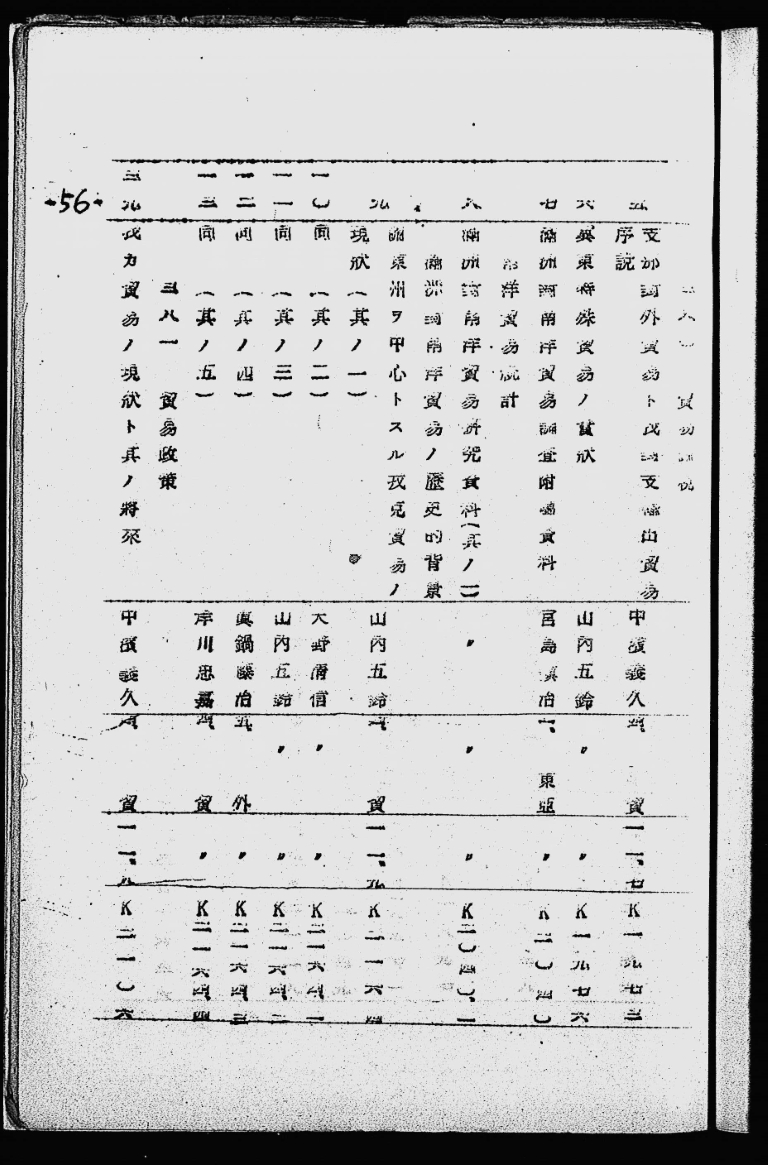 -56-
三八〇 貿易
五 支那国外貿易ト我国支輸出貿易 中濱義久 四、 貿 一一、七 K一九七三
序説
六 冀東特殊貿易ノ實狀 山内五鈴 〃 〃 K一九七六
七 滿洲国南洋貿易調査附属資料 宮島眞冶 一、 東亜 〃 K二〇四〇
南洋貿易統計
八 滿洲国南洋貿易研究資料(其ノ一) 〃 〃 〃 K二〇四〇、一
滿洲国南洋貿易ノ歴史的背景
九 關東州ヲ中心トスル我見貿易ノ 山内五鈴 四、 貿 一一、九 K二一六四
現狀(其ノ一)
一〇 同 (其ノ二) 大野 信 〃 〃 K二一六四、一
一一 同 (其ノ三) 山内五鈴 〃 〃 K二一六四、二
一二 同 (其ノ四) 眞鍋藤冶 五、 外 〃 K二一六四、三
一三 同 (其ノ五) 岸川忠嘉 四、 貿 〃 K二一六四、四
三八一 貿易政策
三九 我カ貿易ノ現狀ト其ノ將來 中濱義久 四、 貿 一一、九 K二一〇六